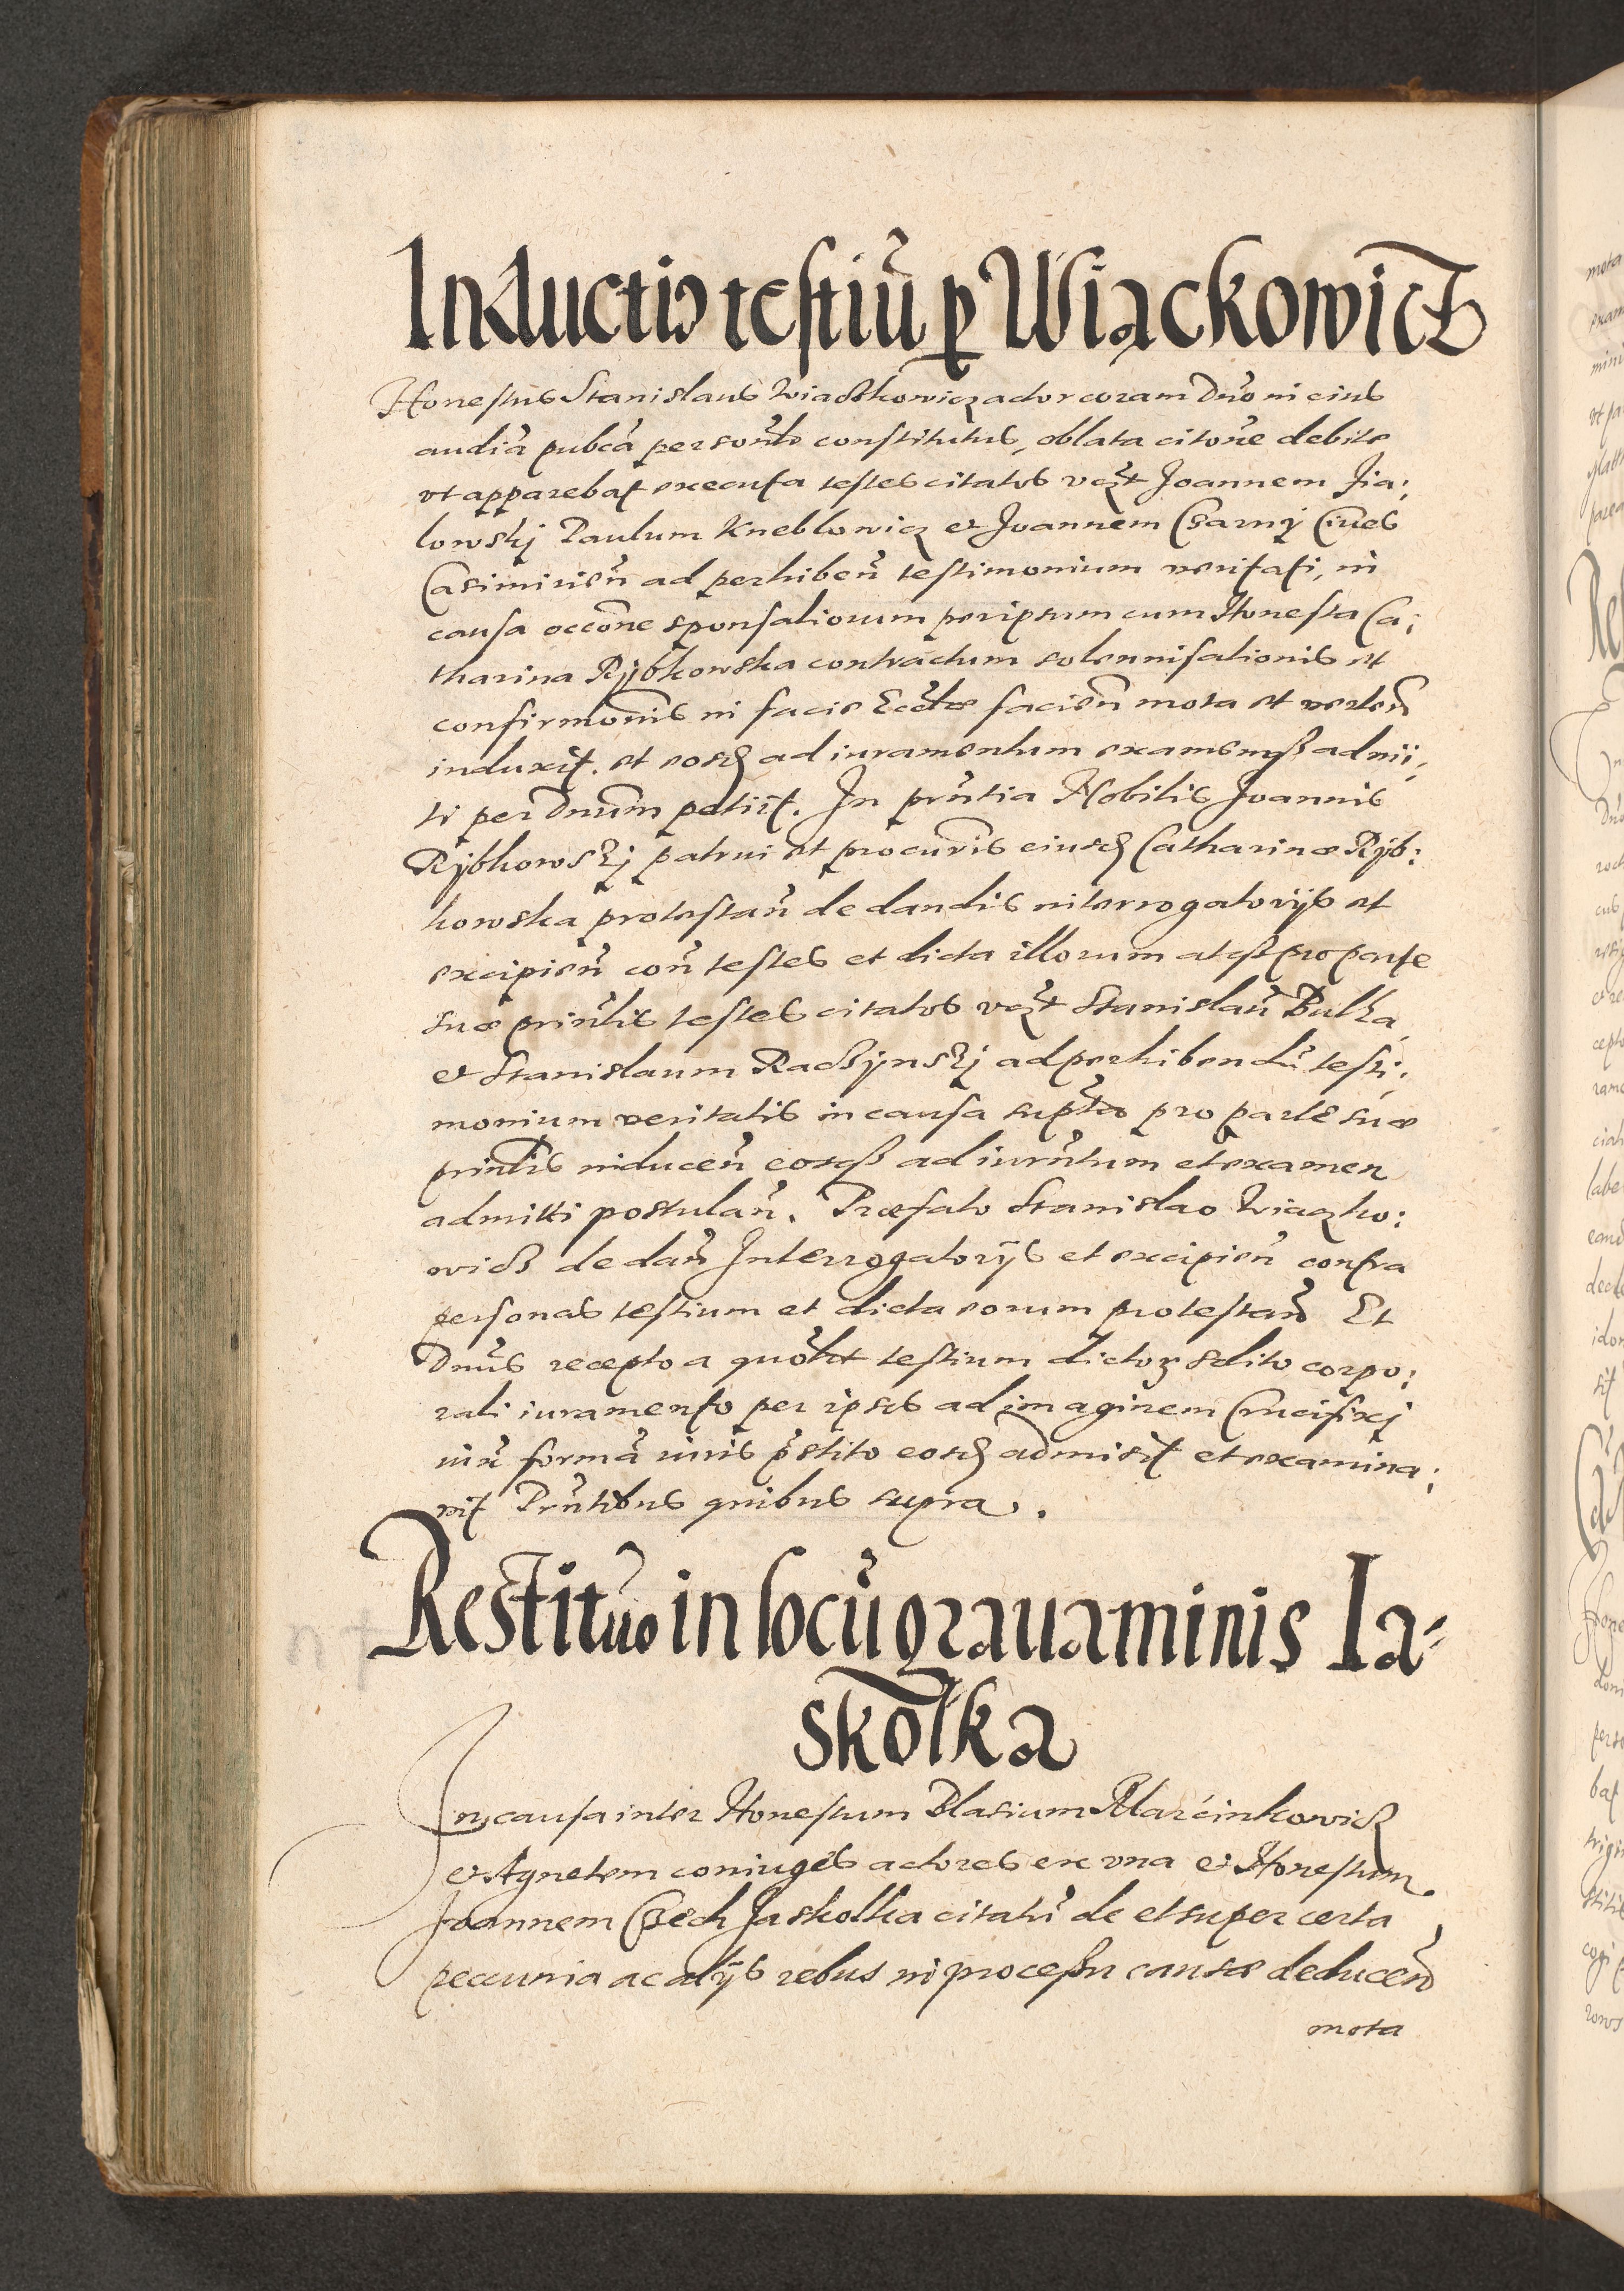 Inductio testiũ p Wiączkowicz
Honestus Stanislaus Wiaczkowicz actor coram Dño in eius
audiã pubcã personlr constitutus, oblata citoñe debite
vt apparebat executa testes citatos vczt Joannem Jia;
lowskj Paulum Kneblowicz et Joannem Czarnÿ Ciues
Casimirieñ ad perhibeñ testimonium veritati, in
causa occoñe sponsaliorum per ipsum cum Honesta Ca;
tharina Rÿbkowska contractum solennisationis et
confirmoñis in facie Ecctæ facieñ mota et verteñ
induxit. et eosq ad iuramentum examenqß admi;
ti per Dnum petiit. In prñtia Nobilis Joannis
Rÿbkowskj patrui et procuris eiusq Catharinæ Rÿb:
kowska protestañ de dandis interrogatorijs et
excipieñ coñ testes et dicta illorum atqß pro parte
suæ prinlis testes citatos vczt Stanislaũ Bulka
et Stanislaum Raczÿnskj ad perhibendũ testi;
monium veritatis in causa supta pro parte suæ
prinlis induceñ eosqß ad iurñtum et examen
admitti postulañ. Præfato Stanislao Wiaczko:
wicz de dañ Interrogatorÿs et excipieñ contra
personas testium et dicta eorum protestañ Et
Dnus recepto a quolt testium dictoʒ solito corpo;
rali iuramento per ipsos ad imaginem Crucifixj
iux formã iuris pstito eosq admisit et examina;
vit Prñtibus quibus supra.
Restituo in locũ grauaminis Ia-
skolka
In causa inter Honestum Blasium Marcinkowicz
et Agnetem coniuges actores ex vna et Honestum
Joannem Czech Jaskolka citatũ de et super certa
pecunia ac alijs rebus in processu causæ deduceñ
mota